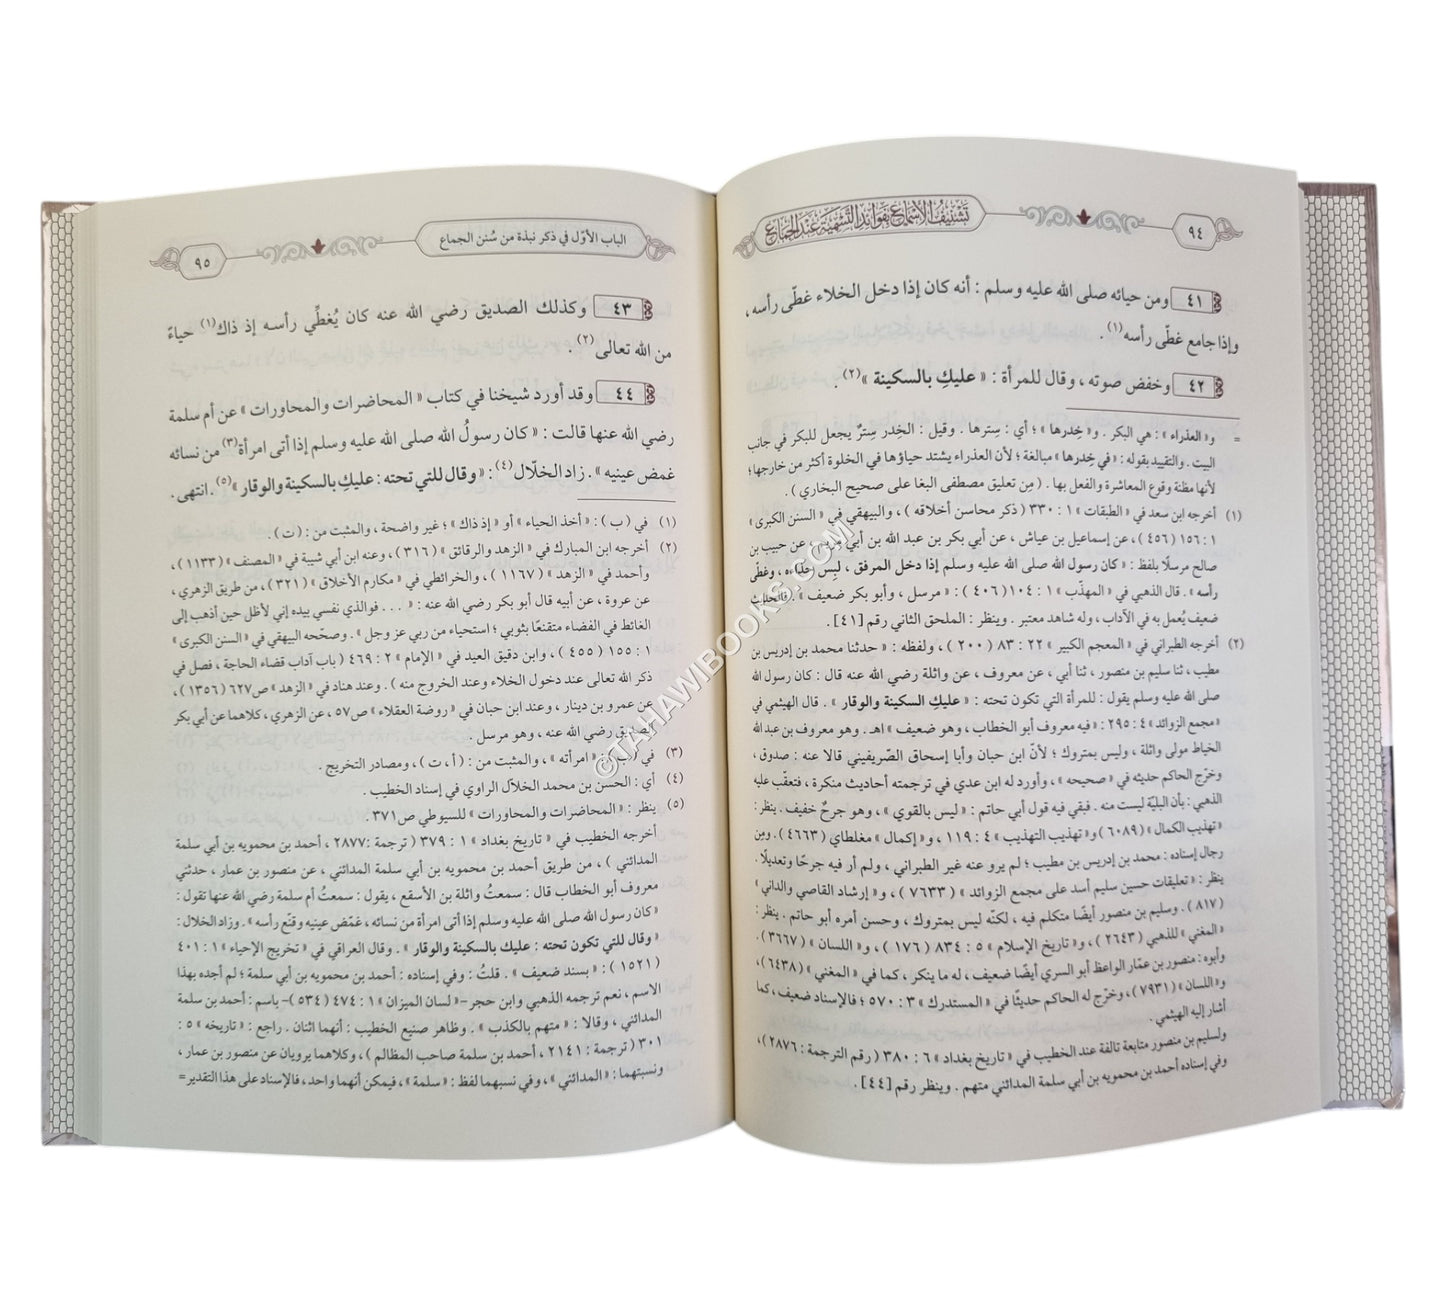 ٩٤
تشنيف الأسماع بفوائد التسمية عند الجماع
٤١ ومن حيائه صلى الله عليه وسلم : أنه كان إذا دخل الخلاء غطّى رأسه ،
وإذا جامع غطّى رأسه(١) .
٤٢ وخفض صوته ، وقال للمرأة : « عليكِ بالسكينة »(٢) .
= و« العذراء » : هي البكر . و« خِدرها » ؛ أي : سِترها . وقيل : الخِدر سِترٌ يجعل للبكر في جانب
البيت . والتقييد بقوله : « في خِدرها » مبالغة ؛ لأن العذراء يشتد حياؤها في الخلوة أكثر من خارجها ؛
لأنها مظنة وقوع المعاشرة والفعل بها . ( مِن تعليق مصطفى البغا على صحيح البخاري ) .
(١) أخرجه ابن سعد في « الطبقات » ١ : ٣٣٠ ( ذكر محاسن أخلاقه ) ، والبيهقي في « السنن الكبرى »
١ : ١٥٦ ( ٤٥٦ ) ، عن إسماعيل بن عياش ، عن أبي بكر بن عبد الله بن أبي مريم ، عن حبيب بن
صالح مرسلًا بلفظ : « كان رسول الله صلى الله عليه وسلم إذا دخل المرفق ، لبِس حذاءه ، وغطّى
رأسه » . قال الذهبي في « المهذّب » ١ : ١٠٤ ( ٤٠٦ ) : « مرسل ، وأبو بكر ضعيف » . فالحديث
ضعيف يُعمل به في الآداب ، وله شاهد معتبر . وينظر : الملحق الثاني رقم [٤١] .
(٢) أخرجه الطبراني في « المعجم الكبير » ٢٢ : ٨٣ ( ٢٠٠ ) ، ولفظه : « حدثنا محمد بن إدريس بن
مطيب ، ثنا سليم بن منصور ، ثنا أبي ، عن معروف ، عن واثلة رضي الله عنه قال : كان رسول الله
صلى الله عليه وسلم يقول : للمرأة التي تكون تحته : « عليكِ السكينة والوقار » . قال الهيثمي في
« مجمع الزوائد » ٤ : ٢٩٥ : « فيه معروف أبو الخطاب ، وهو ضعيف » اهـ . وهو معروف بن عبد الله
الخياط مولى واثلة ، وليس بمتروك ؛ لأنّ ابن حبان وأبا إسحاق الصّريفيني قالا عنه : صدوق ،
وخرّج الحاكم حديثه في « صحيحه » ، وأورد له ابن عدي في ترجمته أحاديث منكرة ، فتعقّب عليه
الذهبي : بأن البليّة ليست منه . فبقي فيه قول أبي حاتم : « ليس بالقوي » ، وهو جرحٌ خفيف . ينظر :
« تهذيب الكمال » ( ٦٠٨٩ ) و« تهذيب التهذيب » ٤ : ١١٩ ، و« إكمال » مغلطاي ( ٤٦٦٣ ) . ومِن
رجال إسناده : محمد بن إدريس بن مطيب ؛ لم يرو عنه غير الطبراني ، ولم أر فيه جرحًا وتعديلًا .
ينظر : « تعليقات حسين سليم أسد على مجمع الزوائد » ( ٧٦٣٣ ) ، و« إرشاد القاصي والداني »
( ٨١٧ ) . وسليم بن منصور أيضًا متكلم فيه ، لكنّه ليس بمتروك ، وحسن أمره أبو حاتم . ينظر :
« المغني » للذهبي ( ٢٦٤٣ ) ، و« تاريخ الإسلام » ٥ : ٨٣٤ ( ١٧٦ ) ، و« اللسان » ( ٣٦٦٧ ) .
وأبوه : منصور بن عمّار الواعظ أبو السري أيضًا ضعيف ، له ما ينكر ، كما في « المغني » ( ٦٤٣٨ ) ،
و« اللسان » ( ٧٩٣١ ) ، وخرّج له الحاكم حديثًا في « المستدرك » ٣ : ٥٧٠ ؛ فالإسناد ضعيف ، كما
أشار إليه الهيثمي .
ولسليم بن منصور متابعة تالفة عند الخطيب في « تاريخ بغداد » ٦ : ٣٨٠ ( رقم الترجمة : ٢٨٧٦ ) ،
وفي إسناده أحمد بن محمويه بن أبي سلمة المدائني متهم . وينظر رقم [٤٤] .
الباب الأوّل في ذكر نبذة من سُنن الجماع
٩٥
٤٣ وكذلك الصديق رضي الله عنه كان يُغطِّي رأسه إذ ذاك(١) حياءً
من الله تعالى(٢) .
٤٤ وقد أورد شيخنا في كتاب « المحاضرات والمحاورات » عن أم سلمة
رضي الله عنها قالت : « كان رسولُ الله صلى الله عليه وسلم إذا أتى امرأة(٣) من نسائه
غمض عينيه » . زاد الخلّال(٤) : « وقال للتي تحته : عليكِ بالسكينة والوقار »(٥) . انتهى .
(١) في ( ب ) : « أخذ الحياء » أو « إذ ذاك » ؛ غير واضحة ، والمثبت من : ( ت ) .
(٢) أخرجه ابن المبارك في « الزهد والرقائق » ( ٣١٦ ) ، وعنه ابن أبي شيبة في « المصنف » ( ١١٣٣ ) ،
وأحمد في « الزهد » ( ١١٦٧ ) ، والخرائطي في « مكارم الأخلاق » ( ٣٢١ ) ، من طريق الزهري ،
عن عروة ، عن أبيه قال أبو بكر رضي الله عنه : « . . . فوالذي نفسي بيده إني لأظل حين أذهب إلى
الغائط في الفضاء متقنعًا بثوبي ؛ استحياء من ربي عز وجل » . وصحّحه البيهقي في « السنن الكبرى »
١ : ١٥٥ ( ٤٥٥ ) ، وابن دقيق العيد في « الإمام » ٢ : ٤٦٩ ( باب آداب قضاء الحاجة ، فصل في
ذكر الله تعالى عند دخول الخلاء وعند الخروج منه ) . وعند هناد في « الزهد » ص٦٢٧ ( ١٣٥٦ ) ،
عن عمرو بن دينار ، وعند ابن حبان في « روضة العقلاء » ص٥٧ ، عن الزهري ، كلاهما عن أبي بكر
الصديق رضي الله عنه ، وهو مرسل .
(٣) في ( ب ) : « امرأته » ، والمثبت من : ( أ ، ت ) ، ومصادر التخريج .
(٤) أي : الحسن بن محمد الخلاّل الراوي في إسناد الخطيب .
(٥) ينظر : « المحاضرات والمحاورات » للسيوطي ص٣٧١ .
أخرجه الخطيب في « تاريخ بغداد » ١ : ٣٧٩ ( ترجمة : ٢٨٧٧ ، أحمد بن محمويه بن أبي سلمة
المدائني ) ، من طريق أحمد بن محمويه بن أبي سلمة المدائني ، عن منصور بن عمار ، حدثني
معروف أبو الخطاب قال : سمعتُ واثلة بن الأسقع ، يقول : سمعتُ أم سلمة رضي الله عنها تقول :
« كان رسول الله صلى الله عليه وسلم إذا أتى امرأة من نسائه ، غمّض عينيه وقنّع رأسه » . وزاد الخلال :
« وقال للتي تكون تحته : عليك بالسكينة والوقار » . وقال العراقي في « تخريج الإحياء » ١ : ٤٠١
( ١٥٢١ ) : « بسند ضعيف » . قلتُ : وفي إسناده : أحمد بن محمويه بن أبي سلمة ؛ لم أجده بهذا
الاسم ، نعم ترجمه الذهبي وابن حجر -« لسان الميزان » ١ : ٤٧٤ ( ٥٣٤ )- باسم : أحمد بن سلمة
المدائني ، وقالا : « متهم بالكذب » . وظاهر صنيع الخطيب : أنهما اثنان . راجع : « تاريخه » ٥ :
٣٠١ ( ترجمة : ٢١٤١ ، أحمد بن سلمة صاحب المظالم ) ، وكلاهما يرويان عن منصور بن عمار ،
ونسبتهما : « المدائني » ، وفي نسبهما لفظ : « سلمة » ، فيمكن أنهما واحد ، فالإسناد على هذا التقدير =
©TAHAWIBOOKS.COM